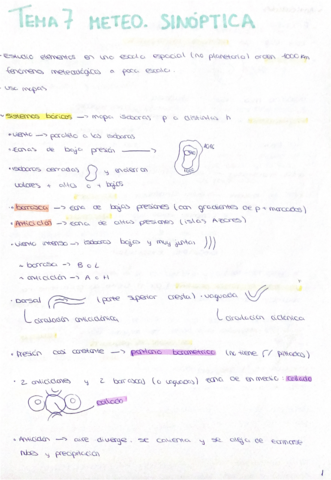 TEMA 7 METEO. SINÓPTICA
· estudio elementos en una escala espacial (no planetaria) orden 1000 km
fenómeno meteorológico = para escala.
· Uso mapas
· Sistemas báricos → mapa isobaras p a distintas h
· viento → paralelo a las isobaras
· zonas de baja presión →
· isobaras cerradas y indican
valores + altos o + bajos
· borrasca → zona de bajas presiones (con gradientes de p + marcados)
· Anticiclón → zona de altas presiones (islas Azores)
· viento intenso → isobaras bajas y muy juntas )))
- borrasca → B o L
- anticiclón → A o H
· Dorsal (parte superior cresta) · vaguada
circulación anticiclónica circulación ciclónica
· Presión casi constante → pantano barométrico (no tiene
· 2 anticiclones y 2 borrascas (o vaguadas) zona de en medio collado
collado
· Anticiclón → aire diverge. se calienta y se aleja de formarse
nubes y precipitación
1